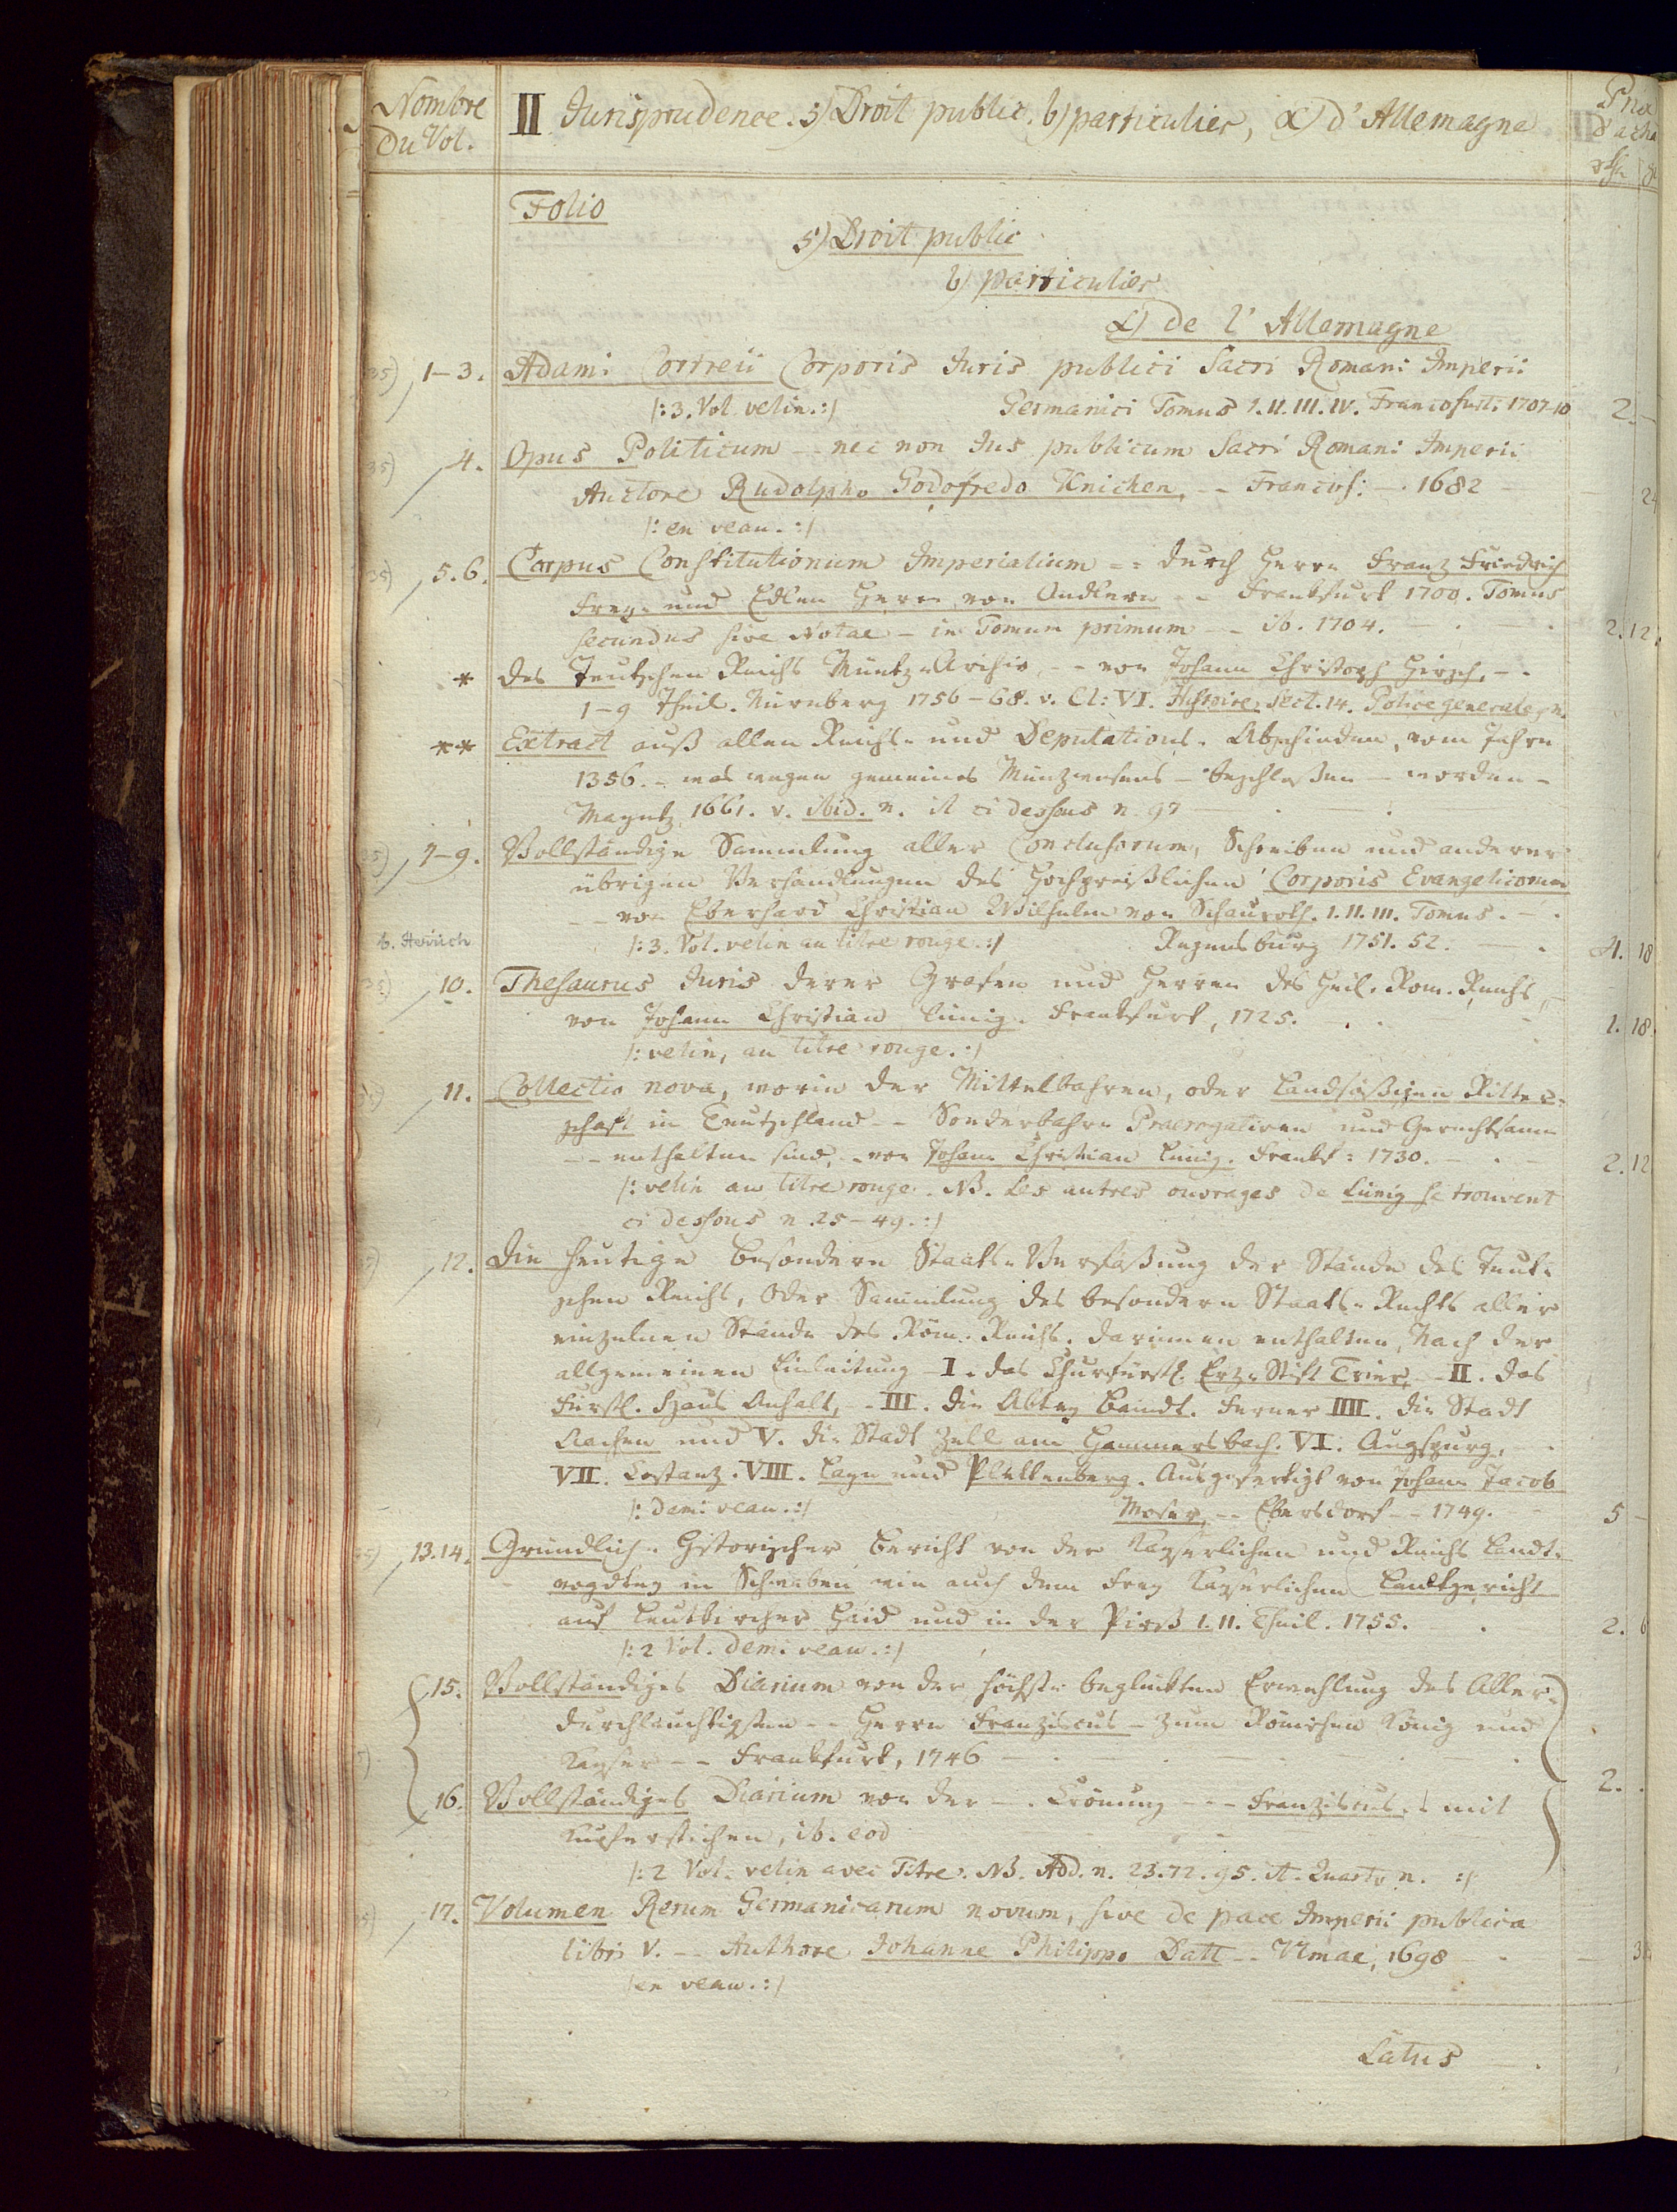 Nombre
Du Vol.
II Jurisprudence. 5) Droit public. b) particulier, α) d'Allemagne
Folio
5) Droit public
b) particulier
α) de l'Allemagne
35) 1-3. Adami Cortreii Corporis Juris publici Sacri Romani Imperii
/: 3. Vol. velin. :/ Germanici Tomus I. II. III. IV. Francofurti 1707-10 2. -
35) 4. Opus Politicum -- nec non Jus publicum Sacri Romani Imperii
Auctore Rudolpho Godofredo Knichen, -- Francof: - . 1682 - 24
/: en veau. :/
35) 5. 6. Corpus Constitutionum Imperialium -- durch Herrn Franz Friedrich
Frey- und Edlen Herrn von Andlern -- Frankfurt 1700. Tomus
secundus sive Notae - in Tomum primum -- ib. 1704. - 2. 12.
* des Teutschen Reichs Müntz-Archiv, -- von Johann Christoph Hirsch, -.
1-9 Theil. Nürnberg 1756-68. v. Cl: VI. Histoire, Sect. 14. Police generale, n.
** Extract auß allen Reichs- und Deputations-Abschieden, vom Jahre
1356. - was wegen gemeines Müntzwesens - beschloßen - worden -
Mayntz 1661. v. ibid. n. it ci dessous n. 97
35) 7-9. Vollständige Sammlung aller Conclusorum, Schreiben und anderer
übrigen Verhandlungen des Hochpreißlichen Corporis Evangelicorum
-- von Eberhard Christian Wilhelm von Schauroth. I. II. III. Tomus. -.
/: 3. Vol. velin au titre rouge. :/ Regensburg 1751. 52. - 4. 18
35) 10. Thesaurus Juris derer Grafen und Herren des Heil. Rom. Reichs
von Johann Christian Lünig. Frankfurt, 1725. 1. 18.
/: velin, au titre rouge. :/
11. Collectio nova, worin der Mittelbahren, oder Landsäßigen Ritter-
schaft in Teutschland -- Sonderbahre Praerogativen und Gerechtsame
-- enthalten sind, -- von Johann Christian Lünig. Frankf: 1730. 2. 12
/: velin au titre rouge. NB. Les autres ouvrages de Lünig se trouvent
ci dessous n. 25-49. :/
12. Die heutige besondere Staats-Verfaßung der Stände des Teut-
schen Reichs, Oder Sammlung des besondern Staats-Rechts aller
einzelnen Stände des Röm. Reichs. darinnen enthalten, Nach der
allgemeinen Einleitung I. das Churfürstl. Erz-Stift Trier, - II. das
Fürstl. Haus Anhalt, - III. die Abtey Baindt. Ferner IIII. die Stadt
Aachen und V. die Stadt Zell am Hammersbach. VI. Augspurg,
VII. Costanz. VIII. Leyen und Plettenberg. Ausgefertigt von Johann Jacob
/: demi veau. :/ Moser, -- Ebersdorf -- 1749. 5 -
35) 13. 14. Gründlich-Historischer Bericht von der Kayserlichen und Reichs Landt-
vogdtey in Schwaben wie auch dem Frey Kayserlichen Landtgericht
auf Leutkircher Haid und in der Pirß I. II. Theil. 1755. 2. 6
/: 2 Vol. demi veau. :/
15. Vollständiges Diarium von der höchst-beglückten Erwehlung des Aller-
durchlauchtigsten -- Herrn Franziscus - zum Römischen König und
Kayser -- Frankfurt, 1746
2.
16. Vollständiges Diarium von der -. Crönung --- Franziscus .. mit
Kupferstichen, ib. eod
/: 2 Vol. velin avec Titre. NB. Add. n. 23. 72. 95. it. Quarto n. :/
17. Volumen Rerum Germanicarum novum, sive de pace Imperii publica
libri V. -- Authore Johanne Philippo Datt -- Ulmae, 1698
/ en veau. :/
Latus -.